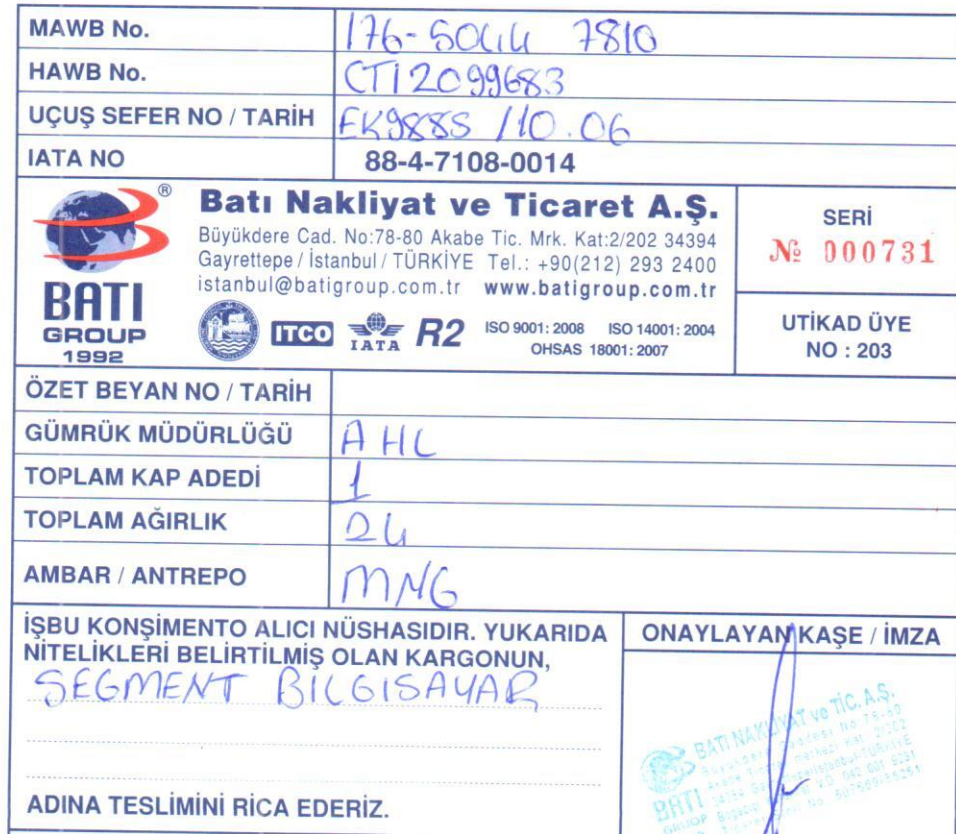 MAWB No. 176-5044 7810
HAWB No. CTI2099683
UÇUŞ SEFER NO / TARİH EK9885 /10.06
IATA NO 88-4-7108-0014
Batı Nakliyat ve Ticaret A.Ş.
Büyükdere Cad. No:78-80 Akabe Tic. Mrk. Kat:2/202 34394
Gayrettepe / İstanbul / TÜRKİYE Tel.: +90(212) 293 2400
istanbul@batigroup.com.tr www.batigroup.com.tr
BATI
GROUP
1992
ITCO IATA R2 ISO 9001: 2008 ISO 14001: 2004
OHSAS 18001: 2007
SERİ
№ 000731
UTİKAD ÜYE
NO : 203
ÖZET BEYAN NO / TARİH
GÜMRÜK MÜDÜRLÜĞÜ AHL
TOPLAM KAP ADEDİ 1
TOPLAM AĞIRLIK 24
AMBAR / ANTREPO MNG
İŞBU KONŞİMENTO ALICI NÜSHASIDIR. YUKARIDA
NİTELİKLERİ BELİRTİLMİŞ OLAN KARGONUN,
SEGMENT BİLGİSAYAR
ADINA TESLİMİNİ RİCA EDERİZ.
ONAYLAYAN KAŞE / İMZA
BATI NAKLİYAT ve TİC. A.Ş.
BATI
GROUP